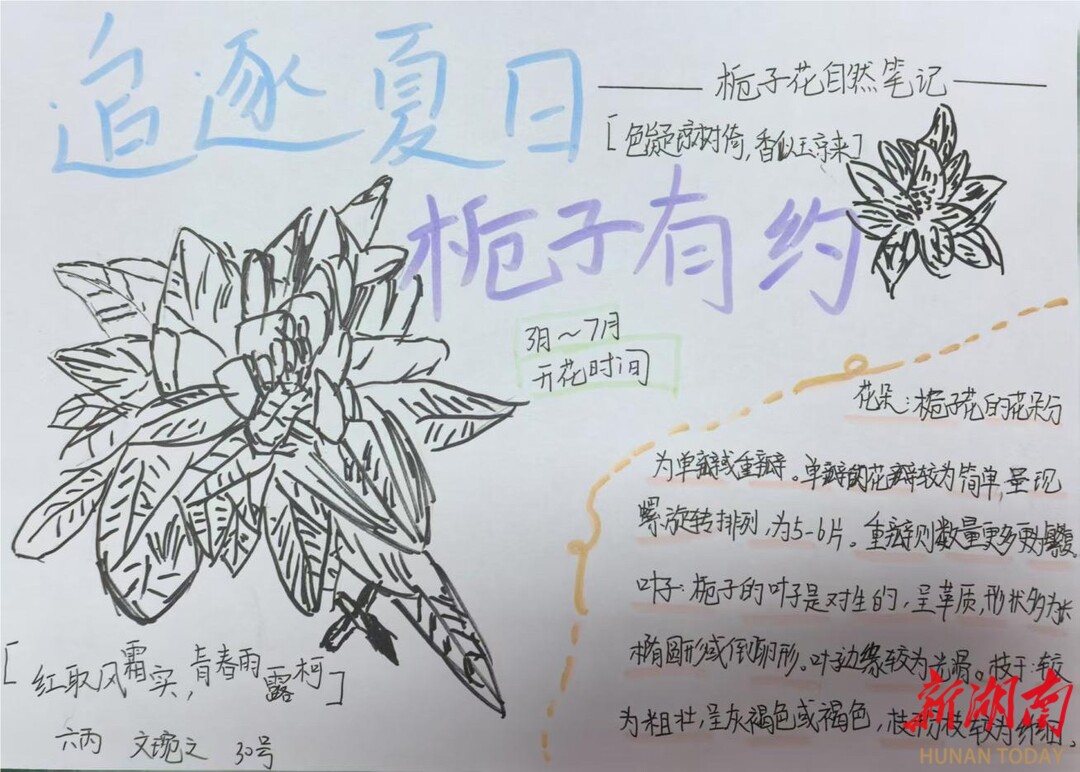 追逐夏日
栀子花自然笔记
[色疑琼树倚,香似玉京来]
栀子有约
3月~7月
开花时间
花朵:栀子花的花朵分
为单瓣或重瓣。单瓣的花瓣较为简单,呈现
螺旋转排列,为5-6片。重瓣则数量更多更
叶子:栀子的叶子是对生的,呈革质,形状多为长
椭圆形或倒卵形。叶子边缘较为光滑。枝干:较
为粗壮,呈灰褐色或褐色,枝较为纤细。
[红取风霜实,青春雨露柯]
六丙 文琬之 30号
新湖南
HUNAN TODAY